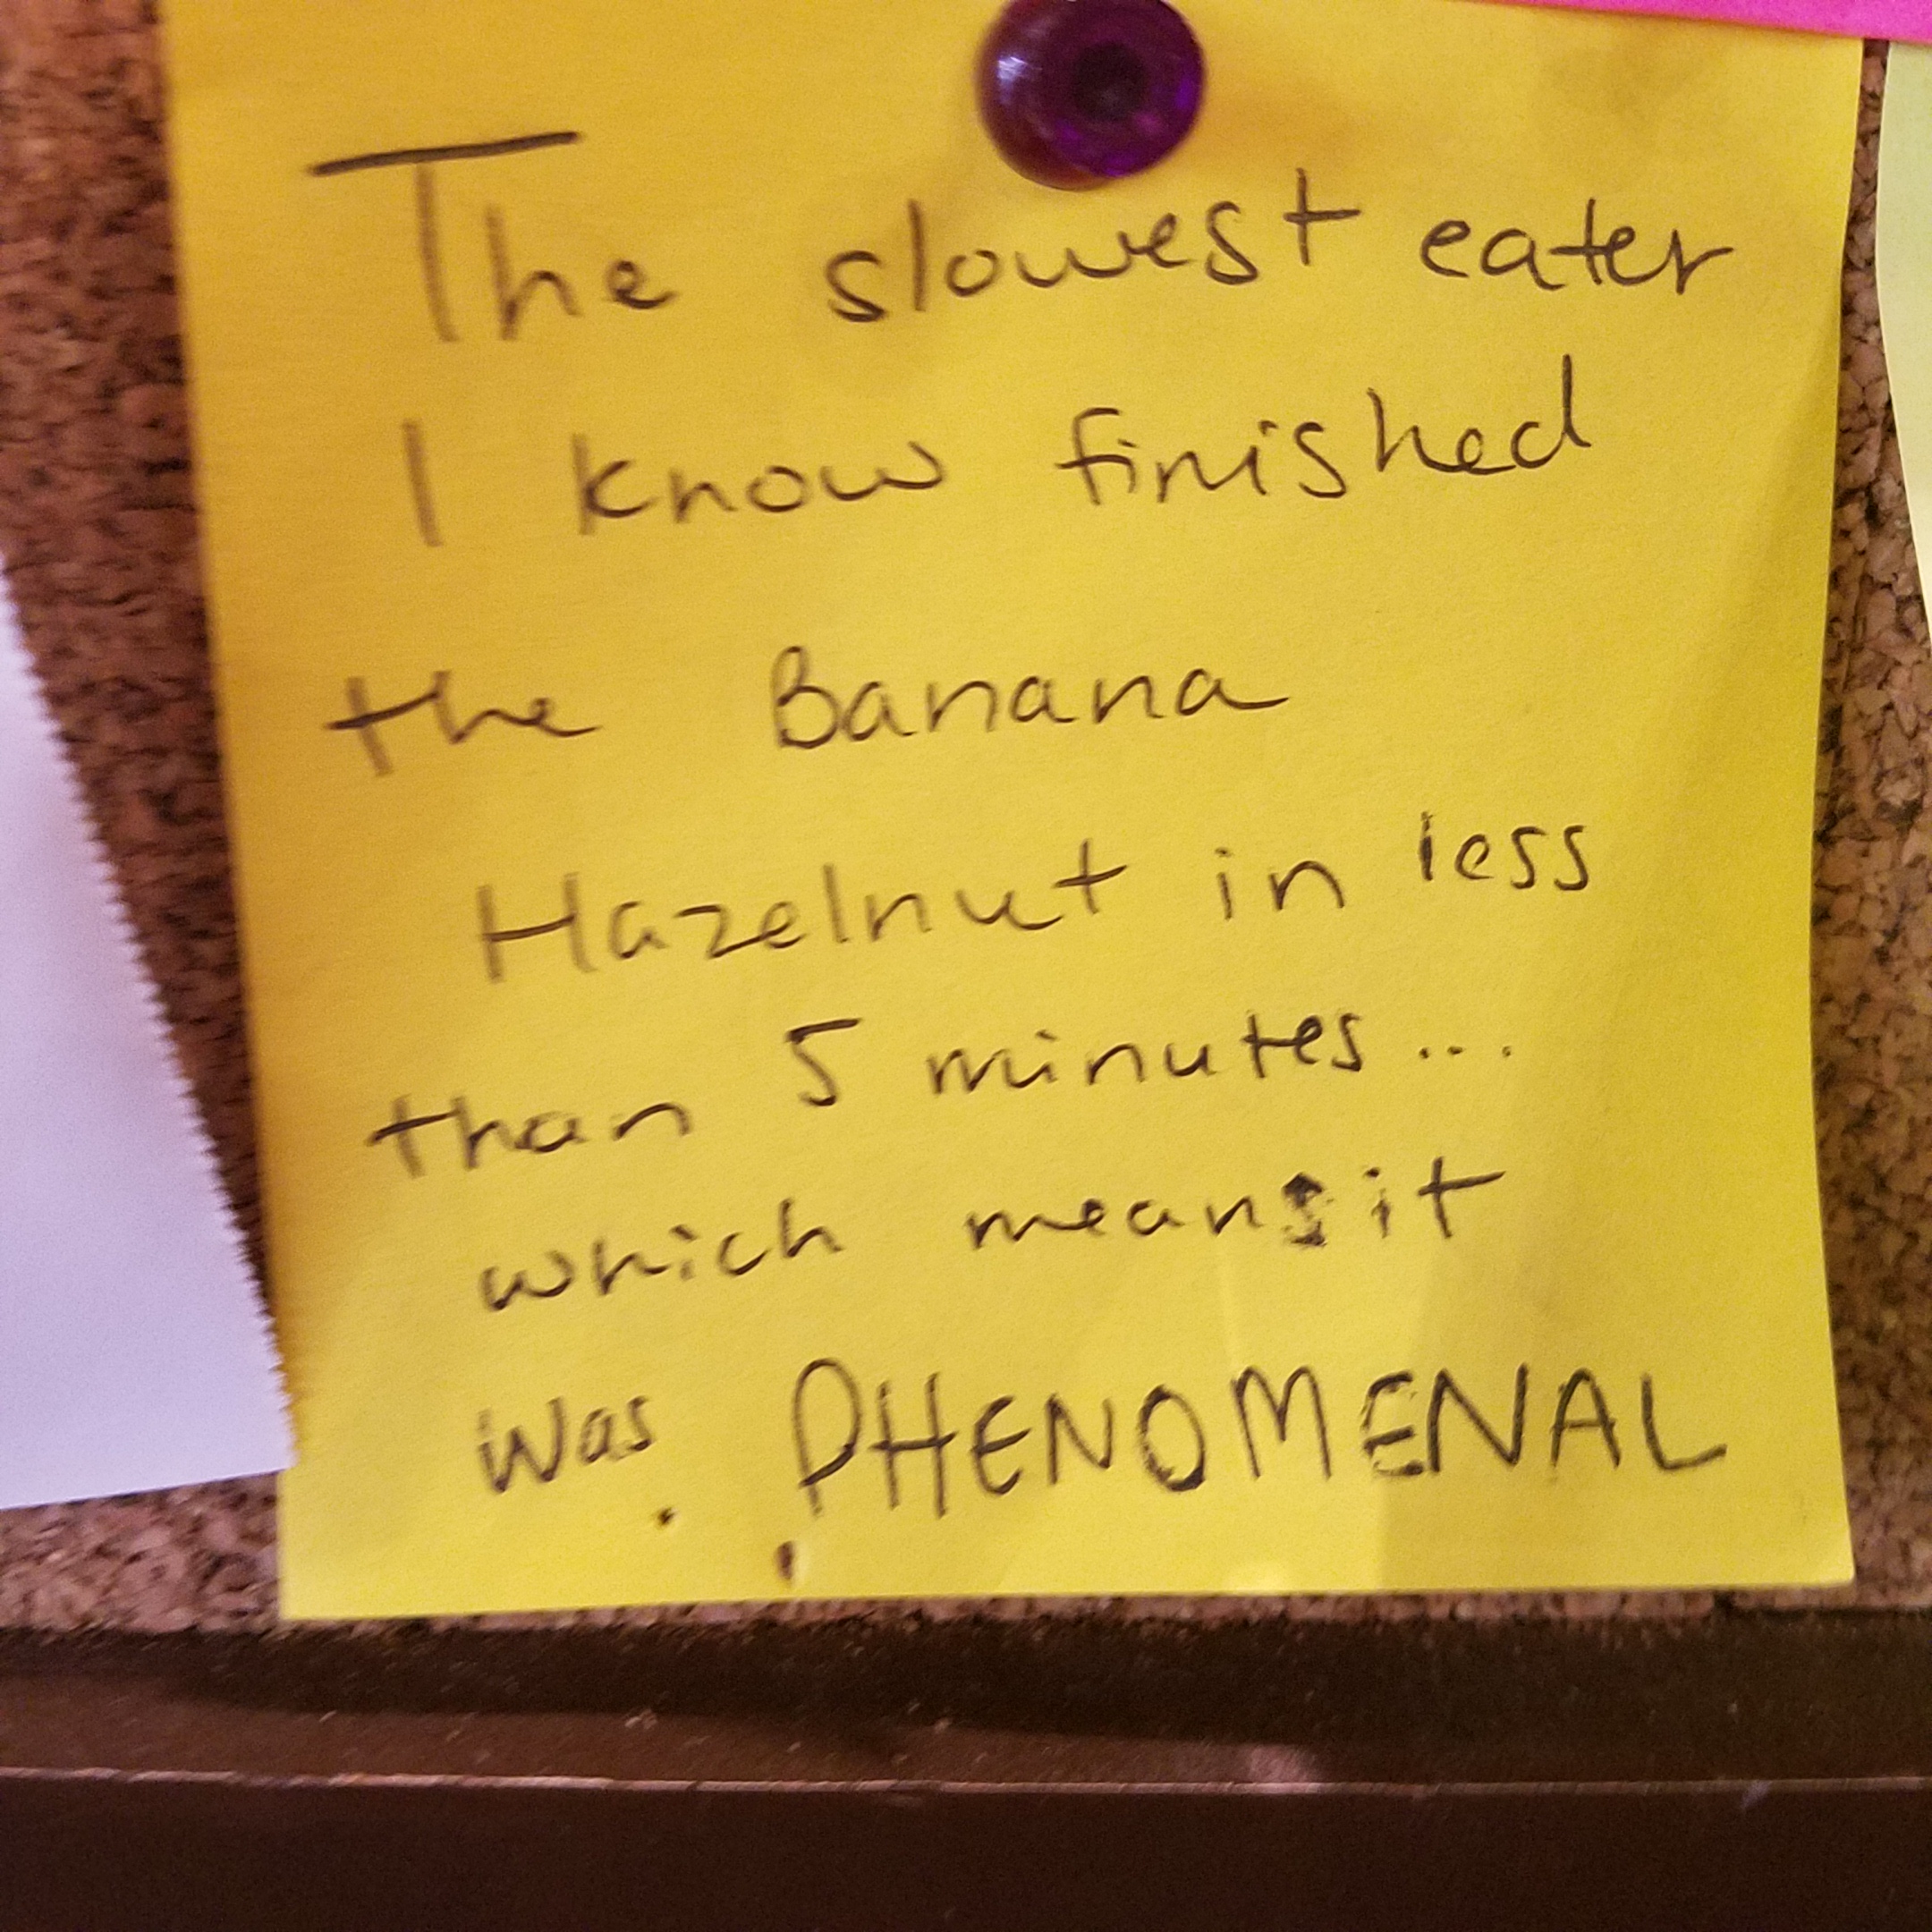 The slowest eater
I know finished
the Banana
Hazelnut in less
than 5 minutes...
which means it
was PHENOMENAL